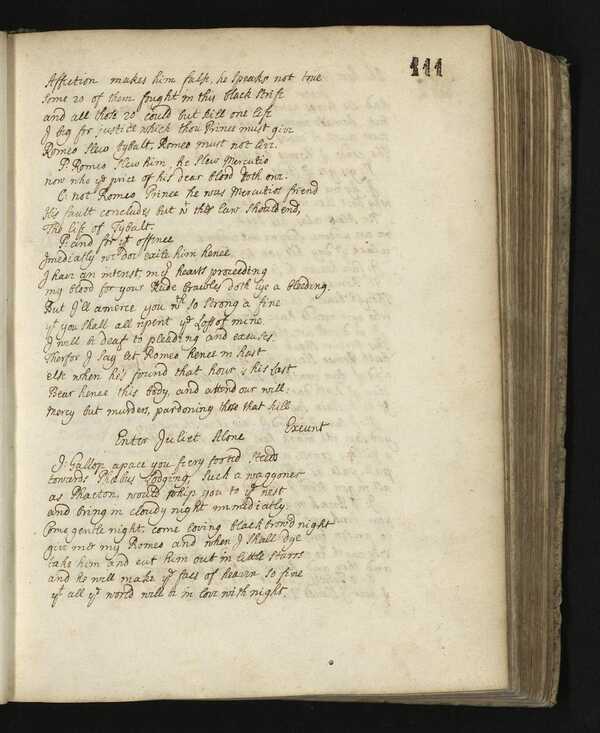 111
Affection makes him false, he speaks not true
Some 20 of them fought in this black strife
and all those 20 could but kill one life
I beg for justice which thou Prince must give
Romeo slew tybalt, Romeo must not live.
P: Romeo slew him, he slew Mercutio
now who ye price of his dear blood doth owe.
C: not Romeo Prince he was Mercutios friend
His fault concludes but wt the law should end,
The life of Tybalt.
P: and for yt offence
Imediatly we doe exile him hence
I have an intrest in yr hearts proceeding
my blood for your Rude brawles doth lye a bleeding.
But I'll amerce you wth so strong a fine
yt you shall all repent ye Loss of mine
I will be deaf to pleading and excuses
Therfor I say let Romeo hence in hast
else when he's found that hour is his last
Bear hence this body, and attend our will:
Mercy but murders, pardoning those that kill
Exeunt
Enter Juliet Alone
J: Gallop apace you fiery footed steeds
towards Phœbus Lodging, such a waggoner
as Phaeton, would whip you to ye west
and bring in cloudy night immediatly.
Come gentle night, come loving black brow'd night
give me my Romeo and when I shall dye
take him and cut him out in little starrs
and he will make ye face of heaven so fine
yt all ye world will be in love with night.